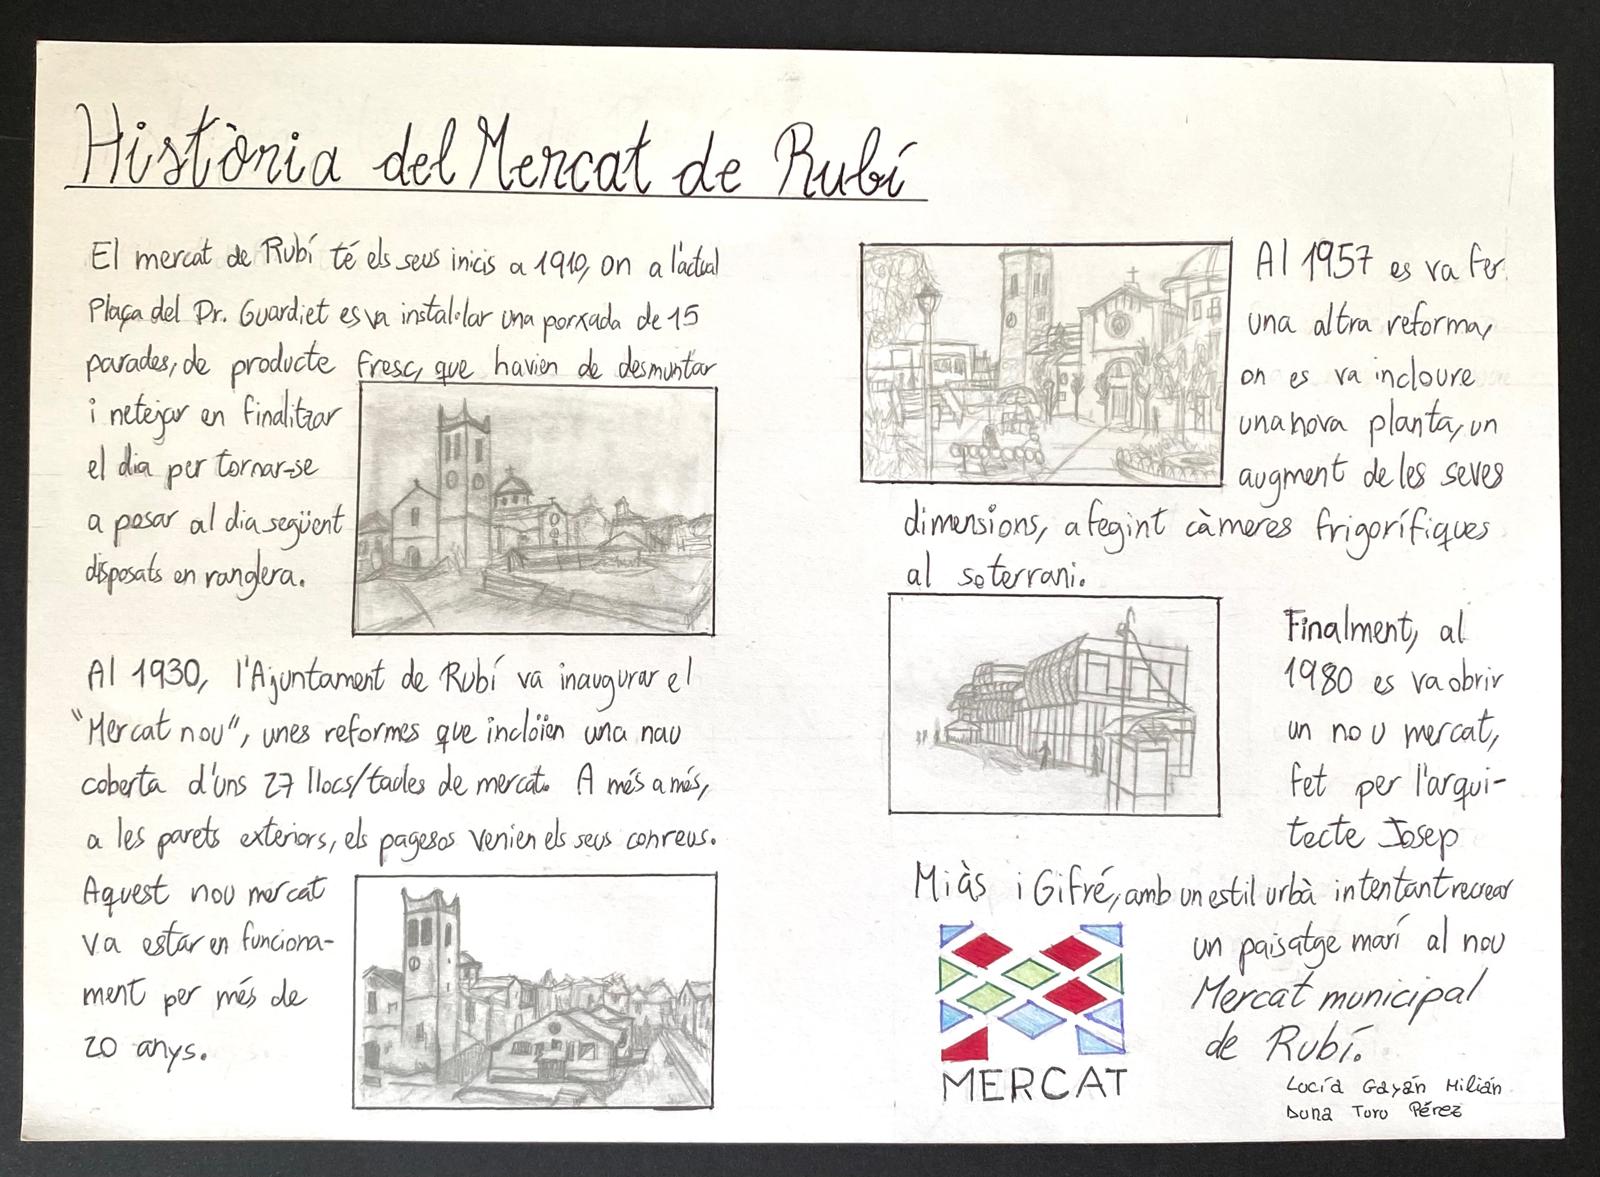 Història del Mercat de Rubí
El mercat de Rubí té els seus inicis a 1910, on a l'actual
Plaça del Dr. Guardiet es va instal·lar una porxada de 15
parades, de producte fresc, que havien de desmuntar
i netejar en finalitzar
el dia per tornar-se
a posar al dia següent
disposats en ranglera.
Al 1930, l'Ajuntament de Rubí va inaugurar el
"Mercat nou", unes reformes que inclöien una nau
coberta d'uns 27 llocs/taules de mercat. A més a més,
a les parets exteriors, els pagesos venien els seus conreus.
Aquest nou mercat
va estar en funciona-
ment per més de
20 anys.
Al 1957 es va fer
una altra reforma,
on es va incloure
una nova planta, un
augment de les seves
dimensions, afegint càmeres frigorífiques
al soterrani.
Finalment, al
1980 es va obrir
un nou mercat,
fet per l'arqui-
tecte Josep
Miàs i Gifré, amb un estil urbà intentant recrear
un paisatge marí al nou
Mercat municipal
de Rubí.
MERCAT
Lucía Gayán Milián
Duna Toro Pérez